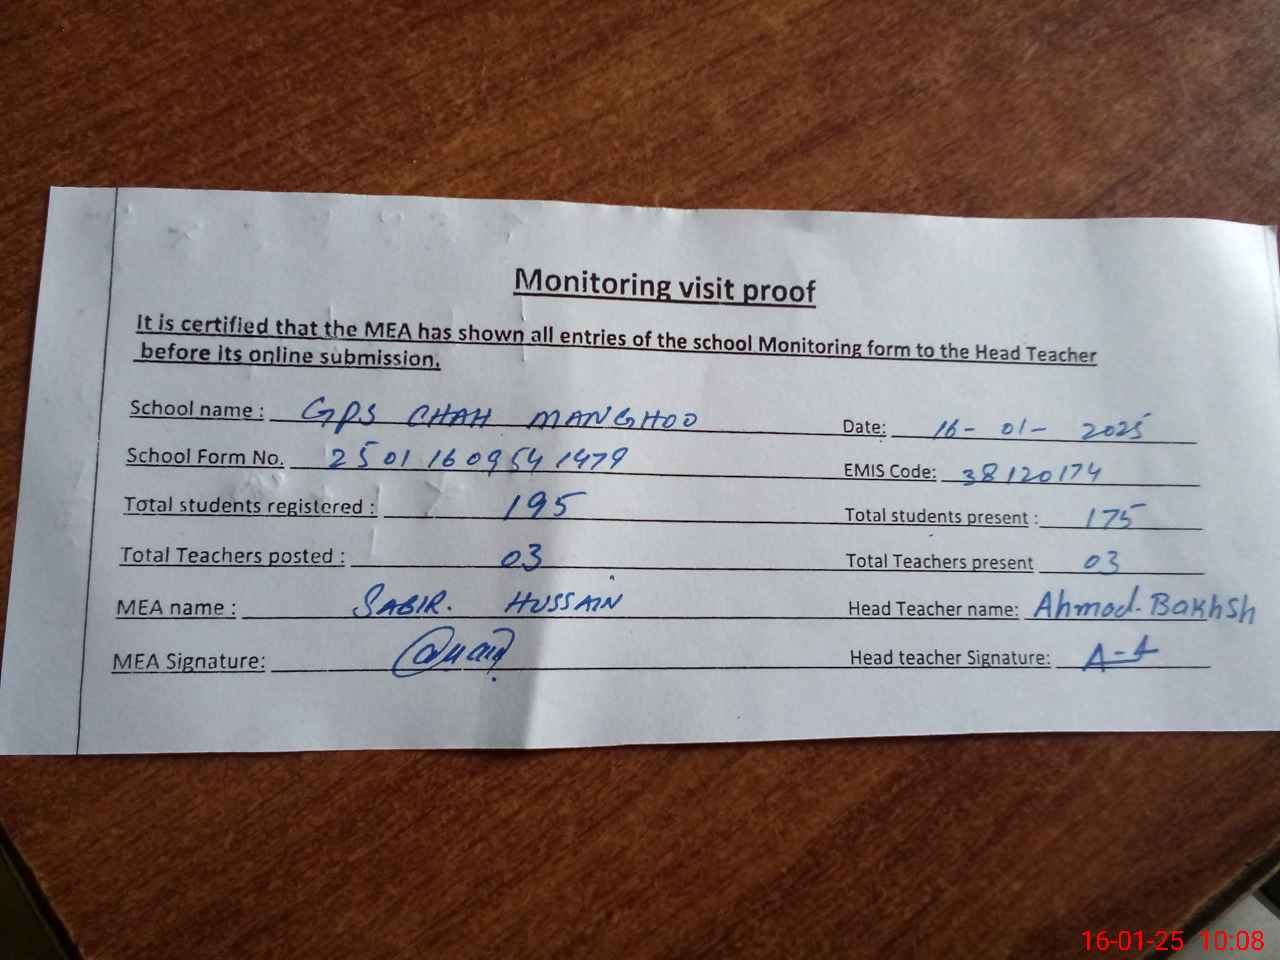 Monitoring visit proof
It is certified that the MEA has shown all entries of the school Monitoring form to the Head Teacher
before its online submission.
School name : GPS CHAH MANGHOO Date: 16-01-2025
School Form No. 25011609541479 EMIS Code: 38120174
Total students registered : 195 Total students present : 175
Total Teachers posted : 03 Total Teachers present 03
MEA name : SABIR. HUSSAIN Head Teacher name: Ahmad. Bakhsh
MEA Signature: Head teacher Signature:
16-01-25 10:08